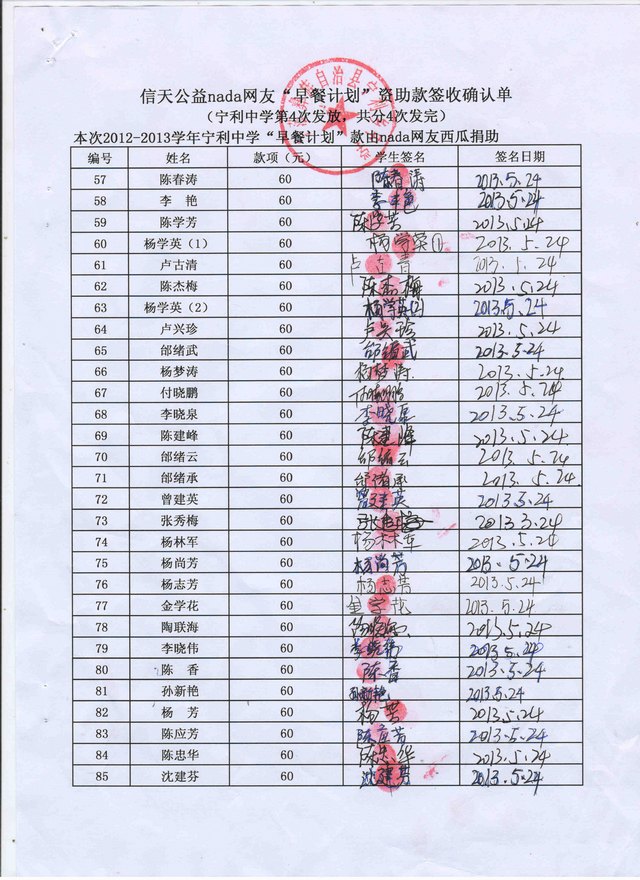 信天公益nada网友“早餐计划”资助款签收确认单
（宁利中学第4次发放，共分4次发完）
本次2012-2013学年宁利中学“早餐计划”款由nada网友西瓜捐助
编号 姓名 款项（元） 学生签名 签名日期
57 陈春涛 60 陈春涛 2013.5.24
58 李 艳 60 李艳 2013.5.24
59 陈学芳 60 陈学芳 2013.5.24
60 杨学英（1） 60 杨学英(1) 2013.5.24
61 卢古清 60 卢古青 2013.5.24
62 陈杰梅 60 陈杰梅 2013.5.24
63 杨学英（2） 60 杨学英(2) 2013.5.24
64 卢兴珍 60 卢兴珍 2013.5.24
65 邰绪武 60 邰绪武 2013.5.24
66 杨梦涛 60 杨梦涛 2013.5.24
67 付晓鹏 60 付晓鹏 2013.5.24
68 李晓泉 60 李晓泉 2013.5.24
69 陈建峰 60 陈建峰 2013.5.24
70 邰绪云 60 邰绪云 2013.5.24
71 邰绪承 60 邰绪承 2013.5.24
72 曾建英 60 曾建英 2013.5.24
73 张秀梅 60 2013.5.24
74 杨林军 60 杨林军 2013.5.24
75 杨尚芳 60 杨尚芳 2013.5.24
76 杨志芳 60 杨志芳 2013.5.24
77 金学花 60 金学花 2013.5.24
78 陶联海 60 2013.5.24
79 李晓伟 60 李晓伟 2013.5.24
80 陈 香 60 陈香 2013.5.24
81 孙新艳 60 孙新艳 2013.5.24
82 杨 芳 60 杨芳 2013.5.24
83 陈应芳 60 陈应芳 2013.5.24
84 陈忠华 60 陈忠华 2013.5.24
85 沈建芬 60 沈建芬 2013.5.24